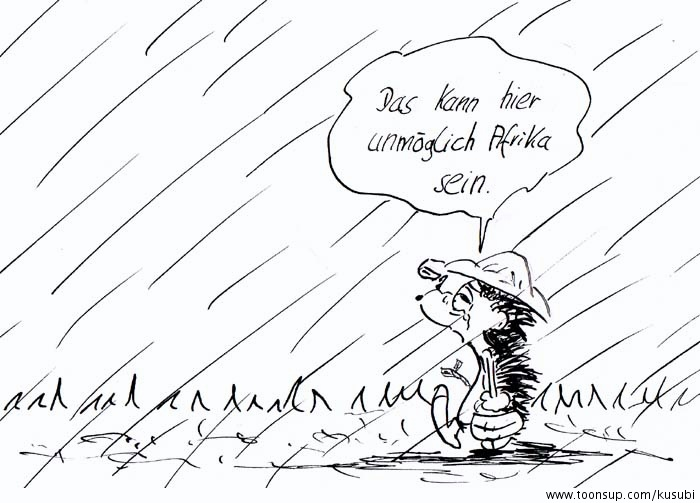 Das kann hier
unmöglich Afrika
sein.
www.toonsup.com/kusubi